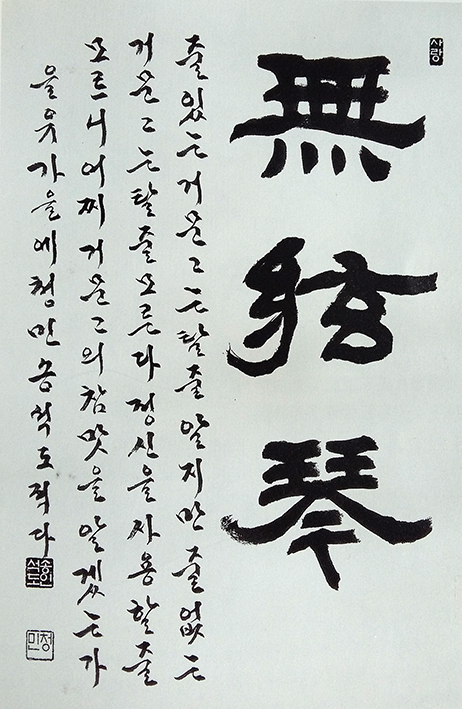 사랑
無弦琴
줄있는거문고는탈줄알지만줄없는
거문고는탈줄모른다정신을사용할줄
모르니어찌거문고의참맛을알겠는가
을유가을에청민송석도적다
송인석도
청민